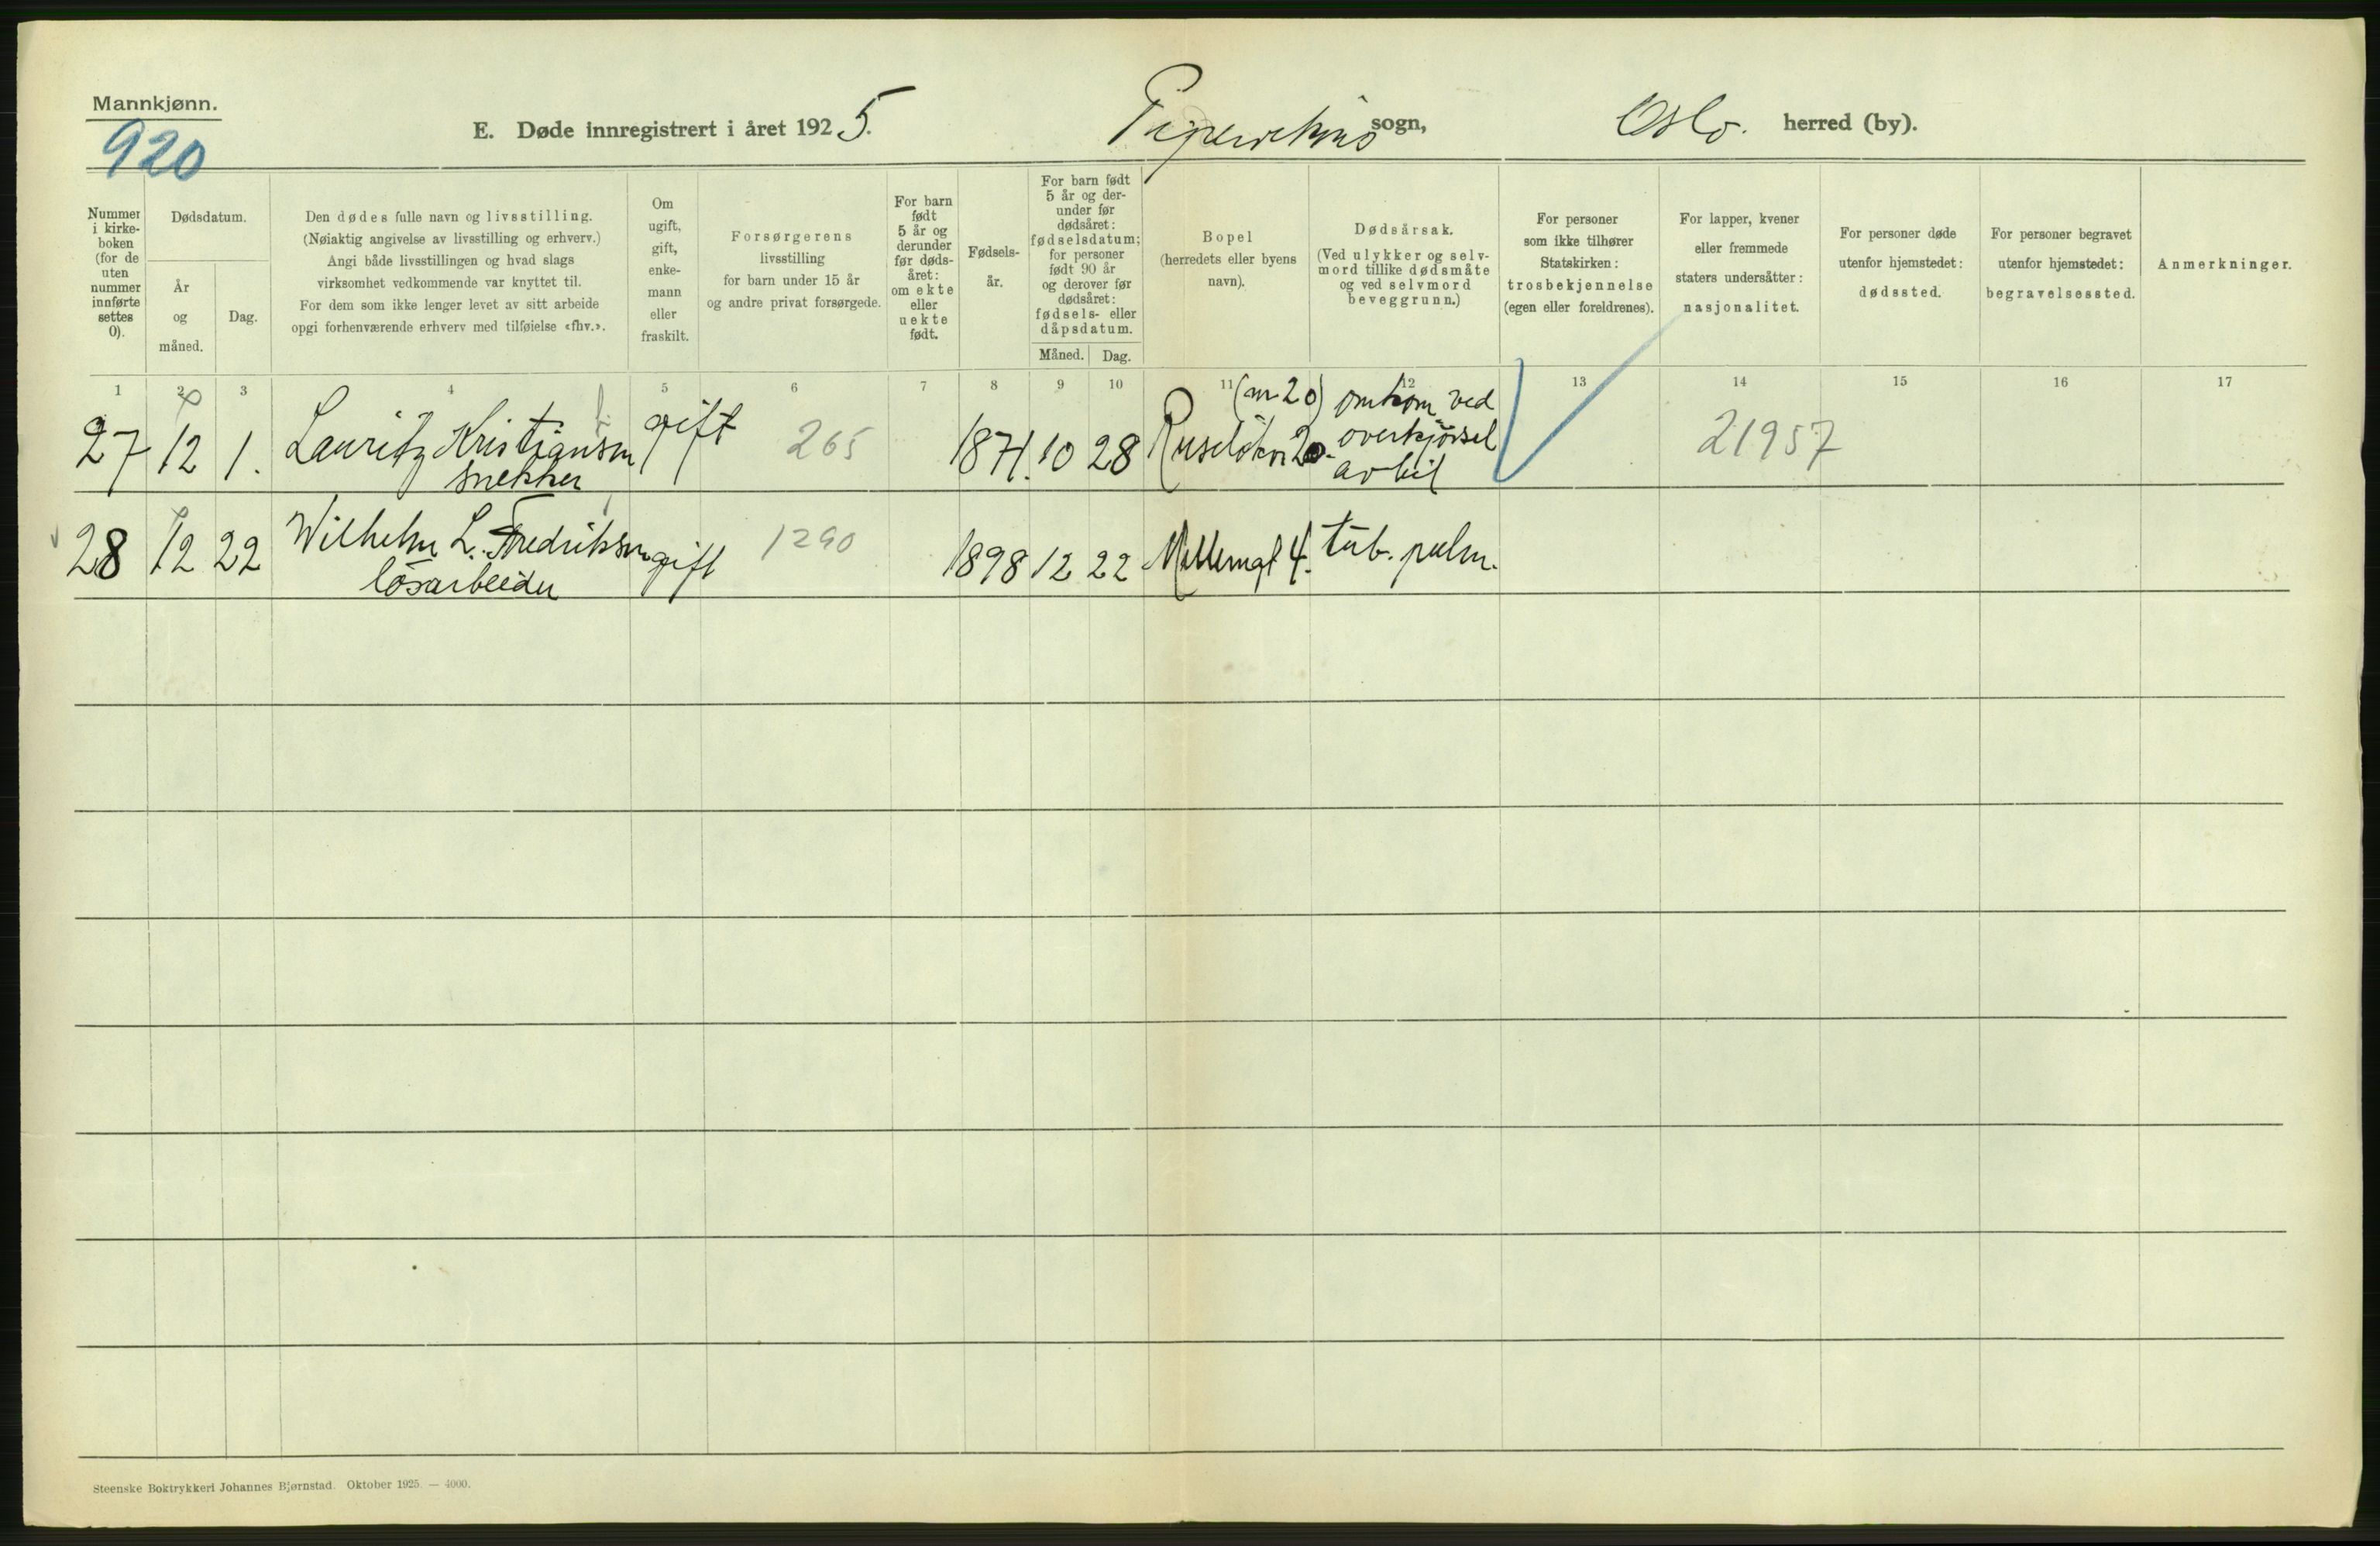 Mannkjønn.
920
E. Døde innregistrert i året 1925. Piperviken sogn, Oslo. herred (by).
Nummer i kirke-boken (for de uten nummer innførte settes 0).
Dødsdatum.
År og måned.
Dag.
Den dødes fulle navn og livsstilling.
(Nøiaktig angivelse av livsstilling og erhverv.)
Angi både livsstillingen og hvad slags
virksomhet vedkommende var knyttet til.
For dem som ikke lenger levet av sitt arbeide
opgi forhenværende erhverv med tilføielse «fhv.».
Om
ugift,
gift,
enke-
mann
eller
fraskilt.
Forsørgerens
livsstilling
for barn under 15 år
og andre privat forsørgede.
For barn
født
5 år og
derunder
før døds-
året:
om ekte
eller
uekte
født.
Fødsels-
år.
For barn født
5 år og der-
under før
dødsåret:
fødselsdatum;
for personer
født 90 år
og derover før
dødsåret:
fødsels- eller
dåpsdatum.
Måned. Dag.
Bopel
(herredets eller byens
navn).
Dødsårsak.
(Ved ulykker og selv-
mord tillike dødsmåte
og ved selvmord
beveggrunn.)
For personer
som ikke tilhører
Statskirken:
trosbekjennelse
(egen eller foreldrenes).
For lapper, kvener
eller fremmede
staters undersåtter:
nasjonalitet.
For personer døde
utenfor hjemstedet:
dødssted.
For personer begravet
utenfor hjemstedet:
begravelsessted.
Anmerkninger.
1 2 3 4 5 6 7 8 9 10 11 12 13 14 15 16 17
27 12 1. Lauritz Kristiansen gift 265 1871. 10 28 Ruseløkvn 20. (nr 20) omkom ved
snekker overkjørsel
av bil 21957
28 12 22 Wilhelm L. Fredriksen gift 1290 1898 12 22 Mellemgt 4. tub. pulm.
løsarbeider
Steenske Boktrykkeri Johannes Bjørnstad. Oktober 1925. — 4000.